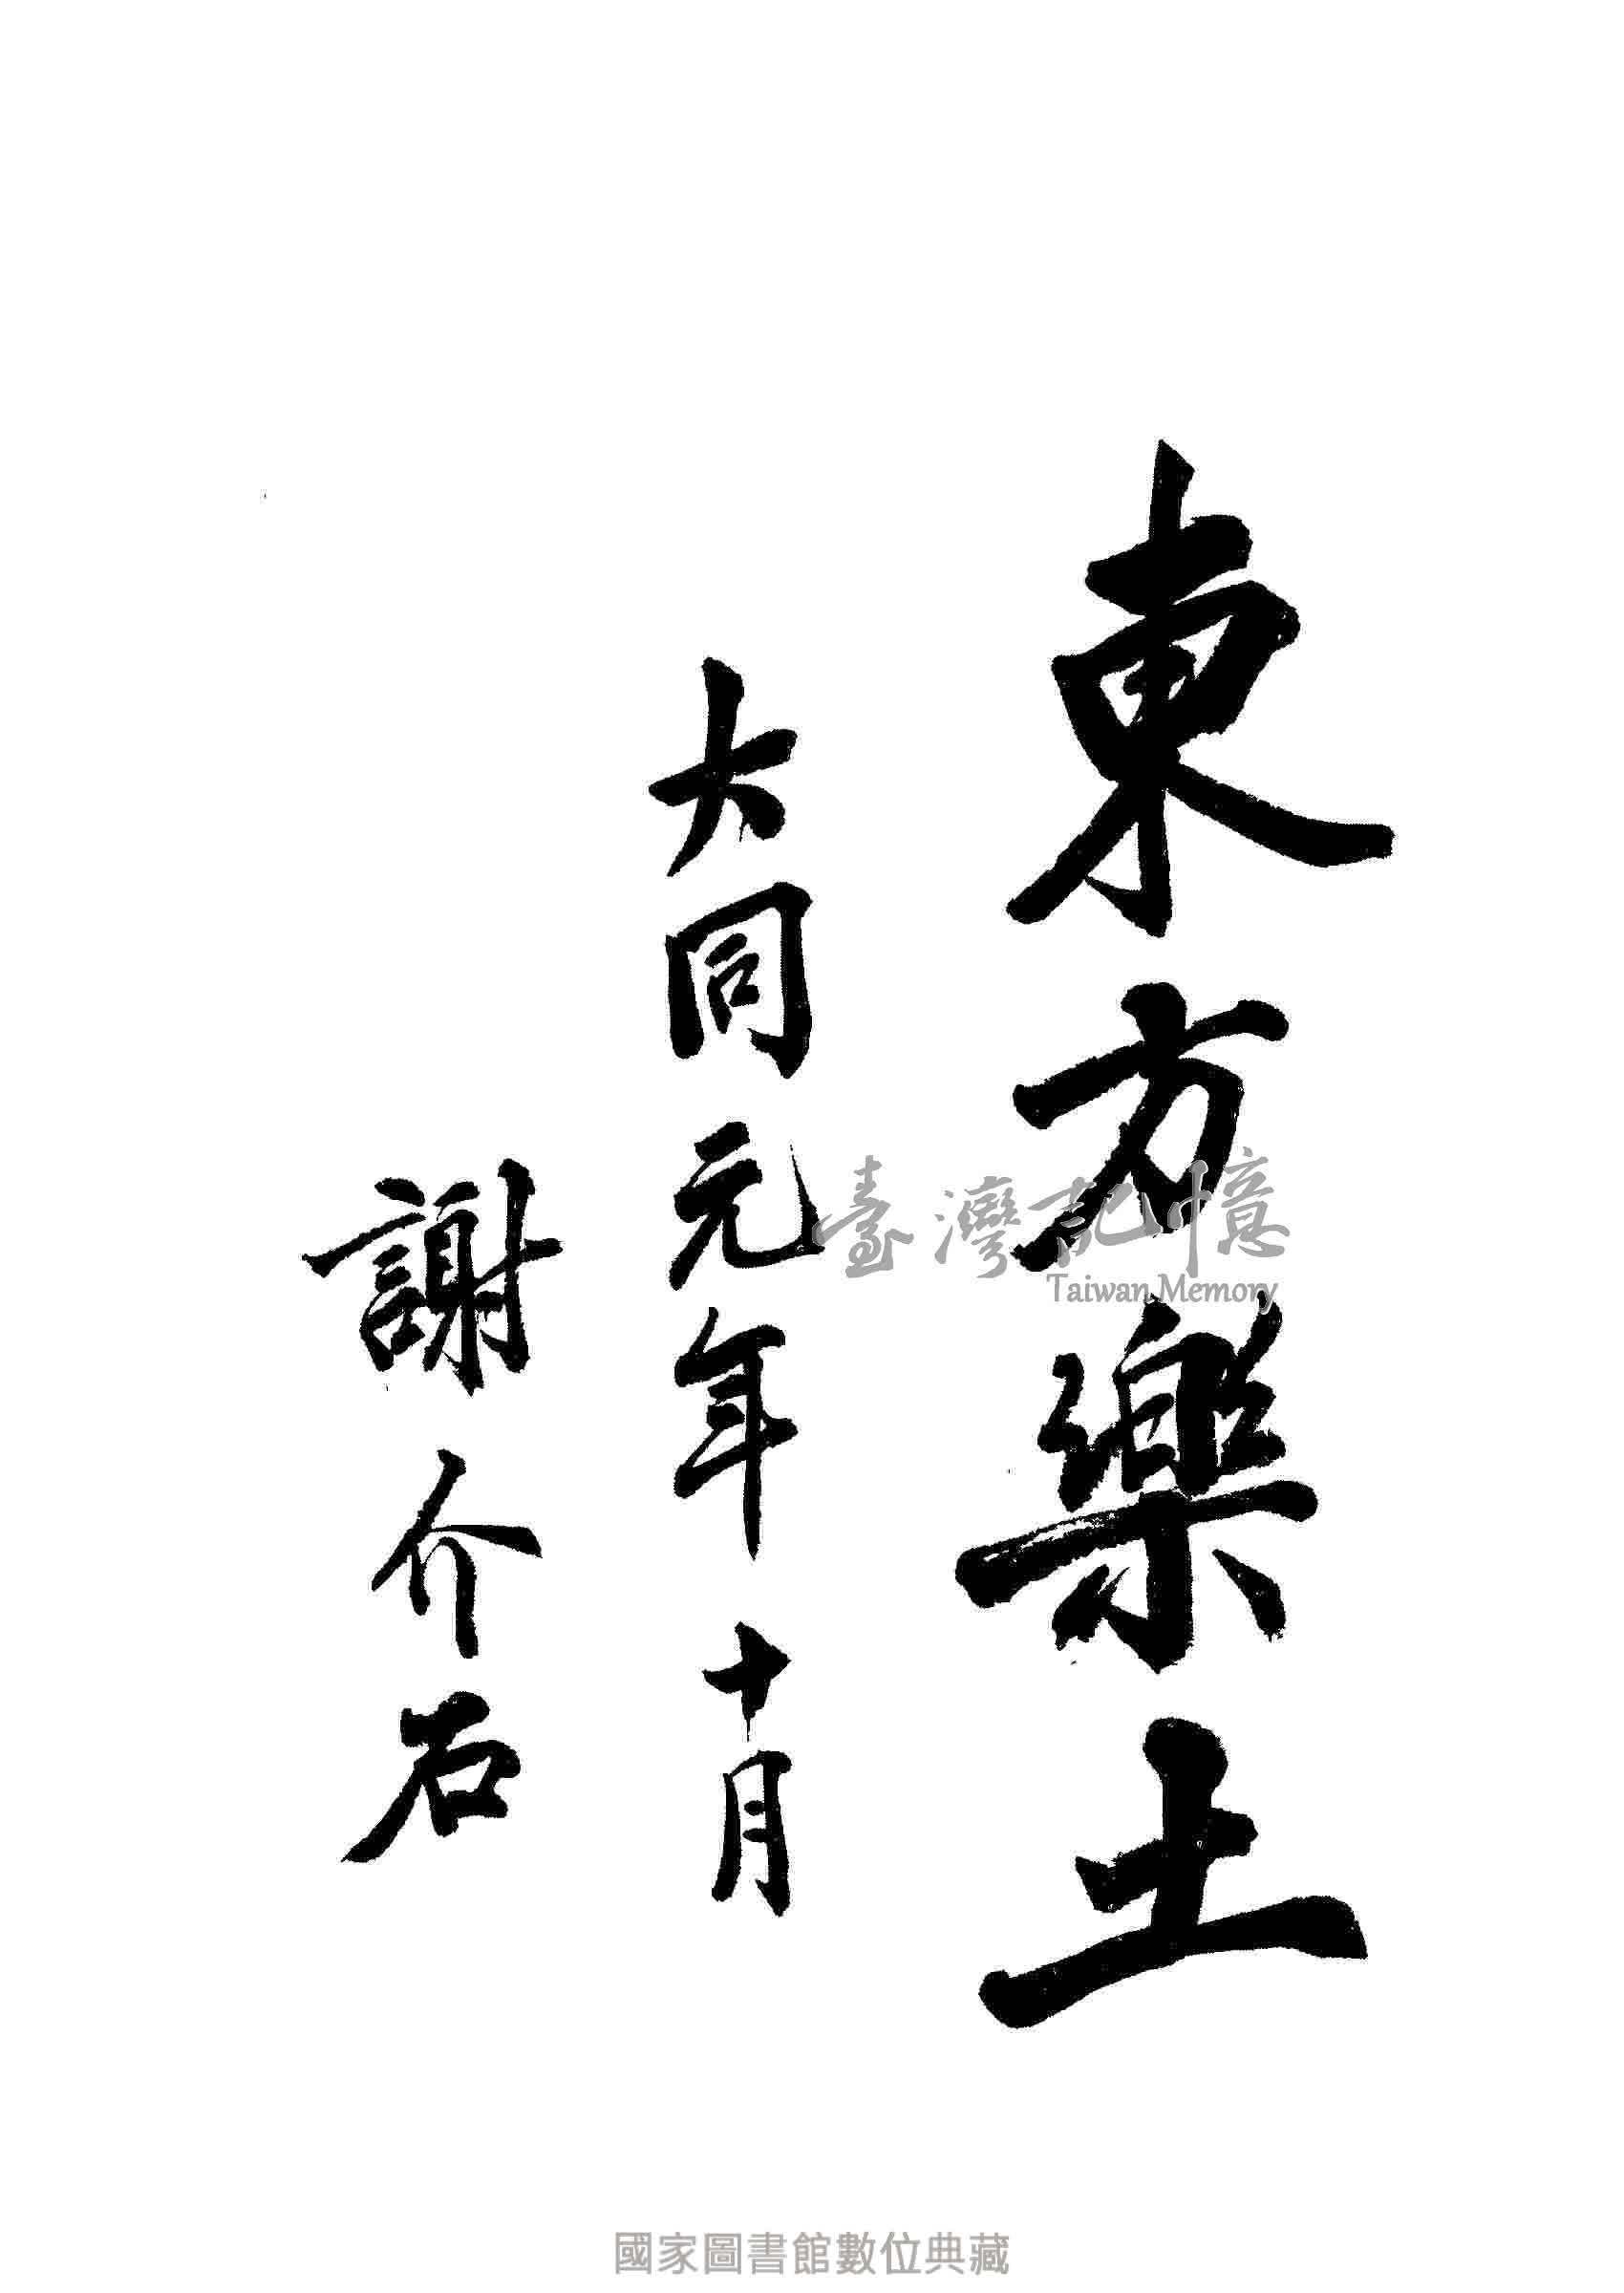 東方樂土
大同元年十月
謝介石
臺灣記憶
Taiwan Memory
國家圖書館數位典藏